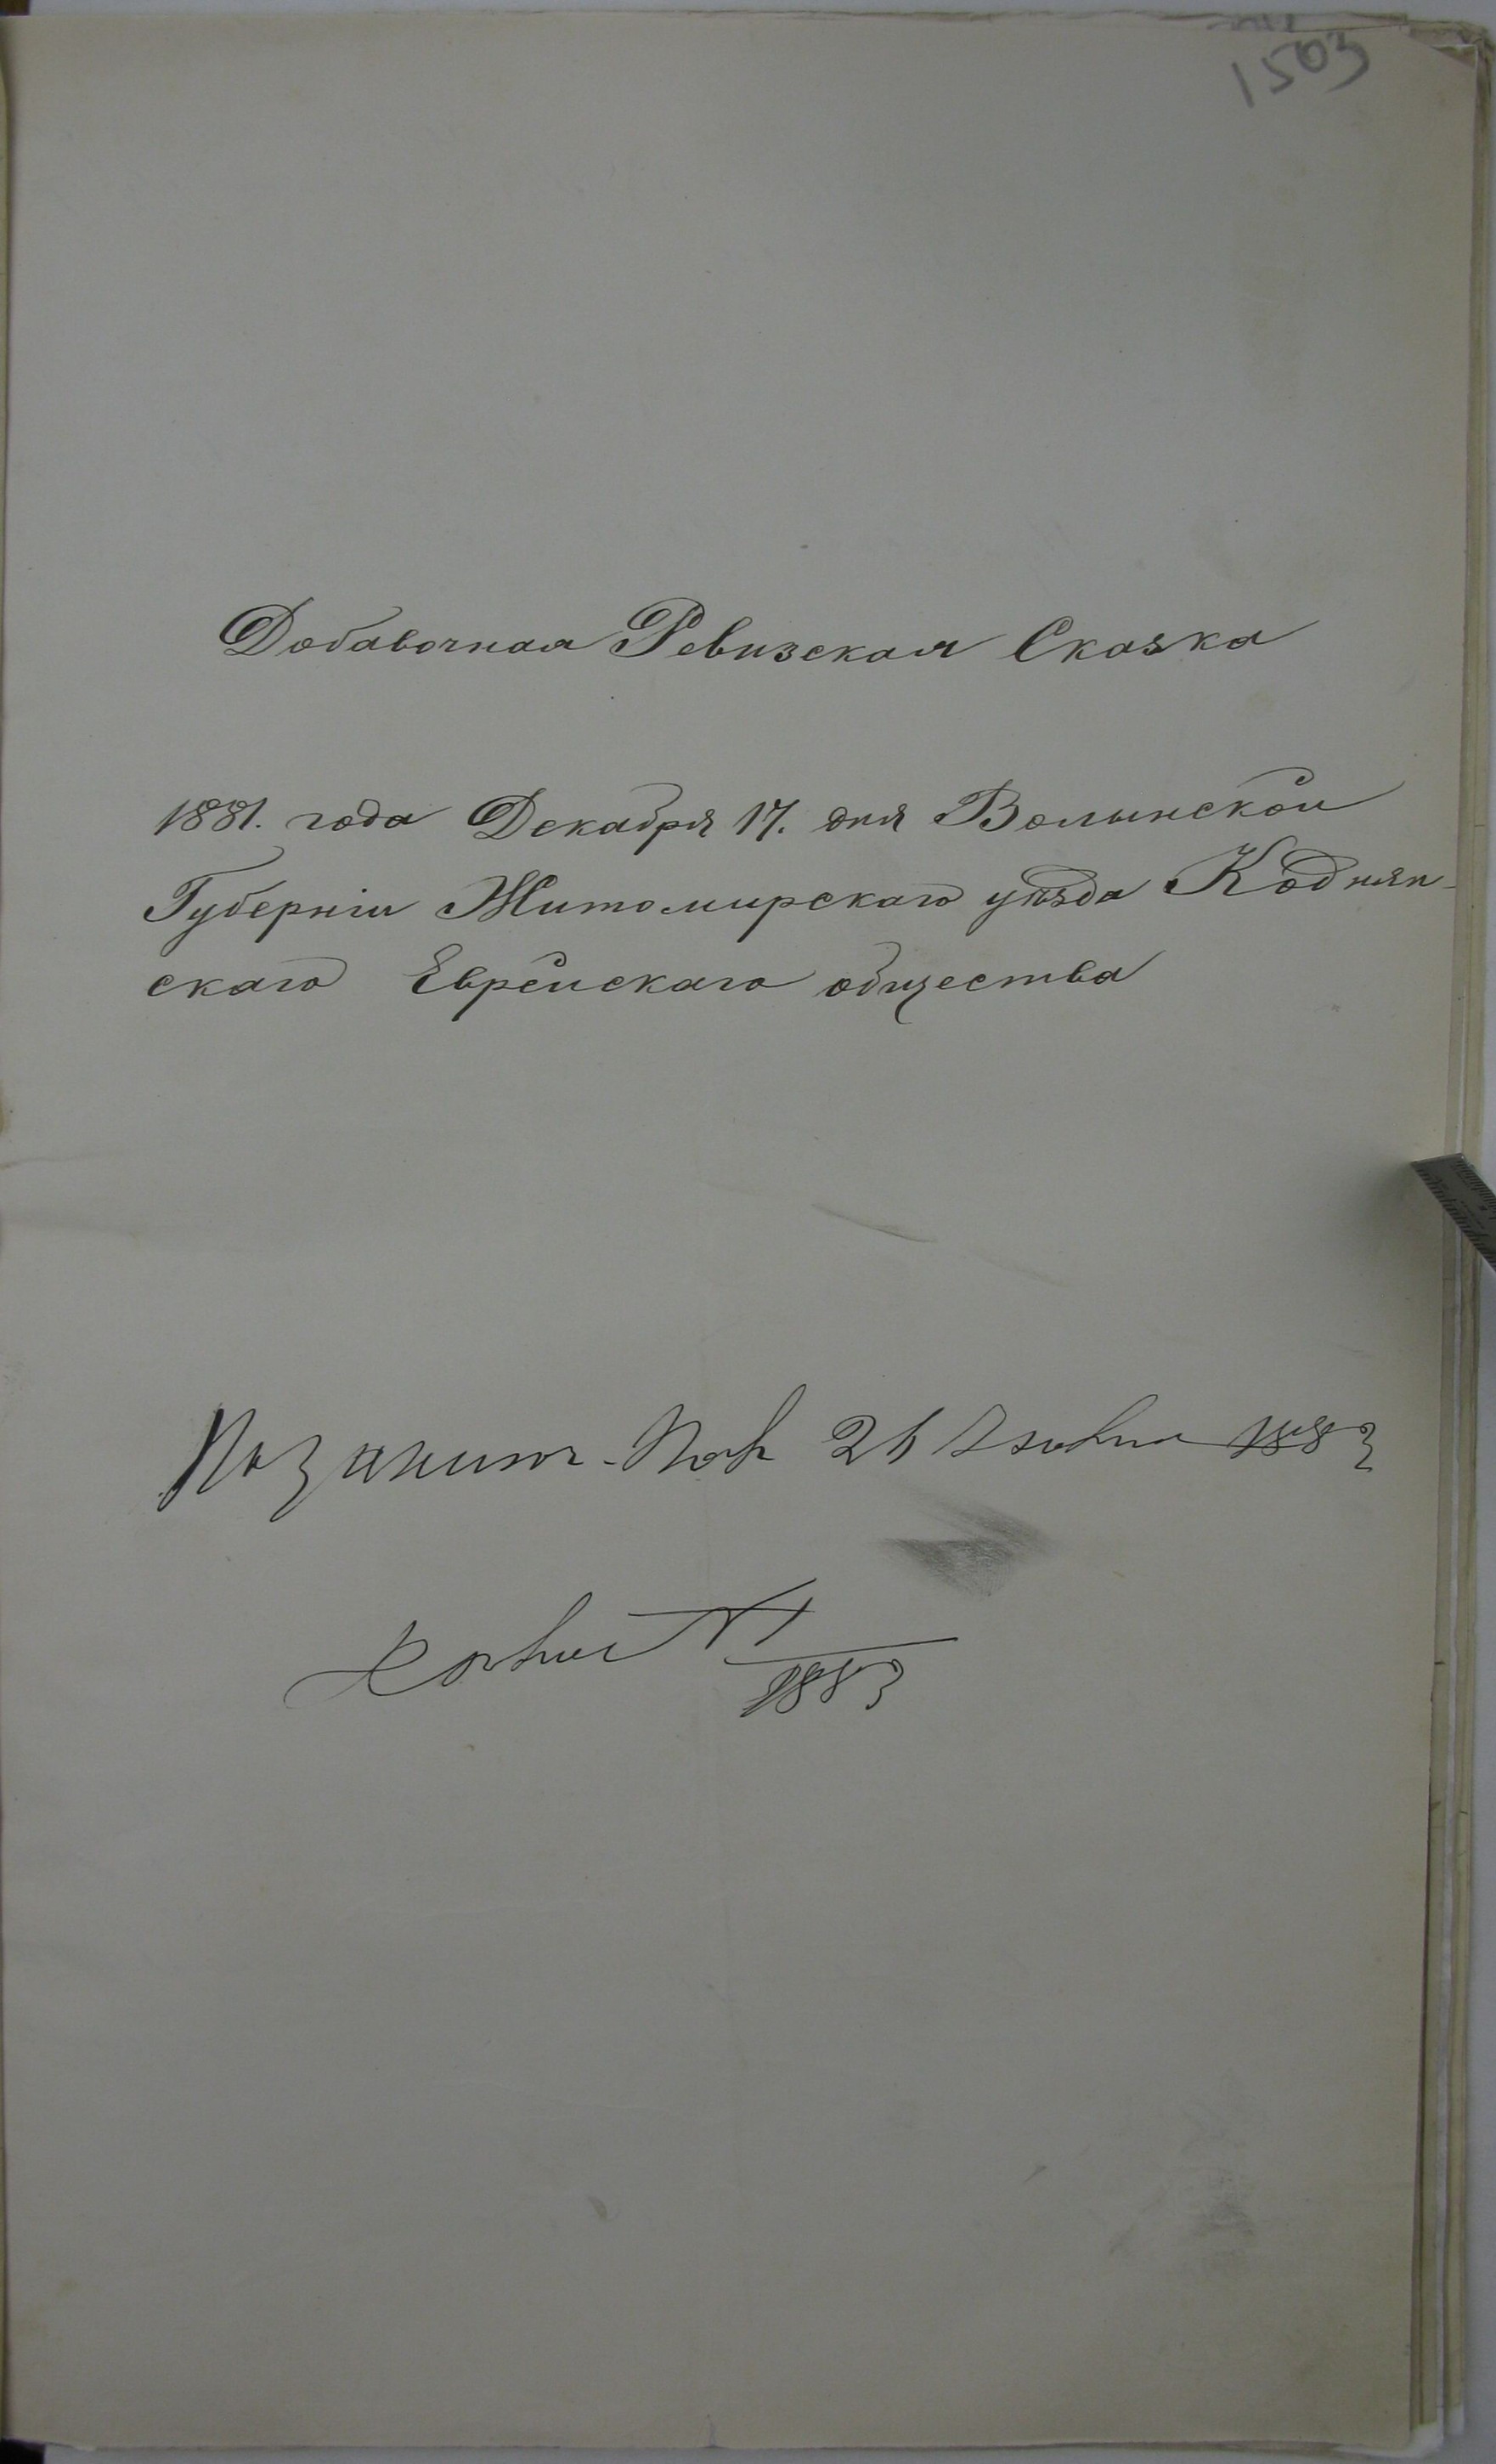 1503
Добавочная Ревизская Сказка
1881. года Декабря 17. дня Волынской
Губерніи Житомирскаго уѣзда Коднян-
скаго Еврейскаго общества
26 1883
1883